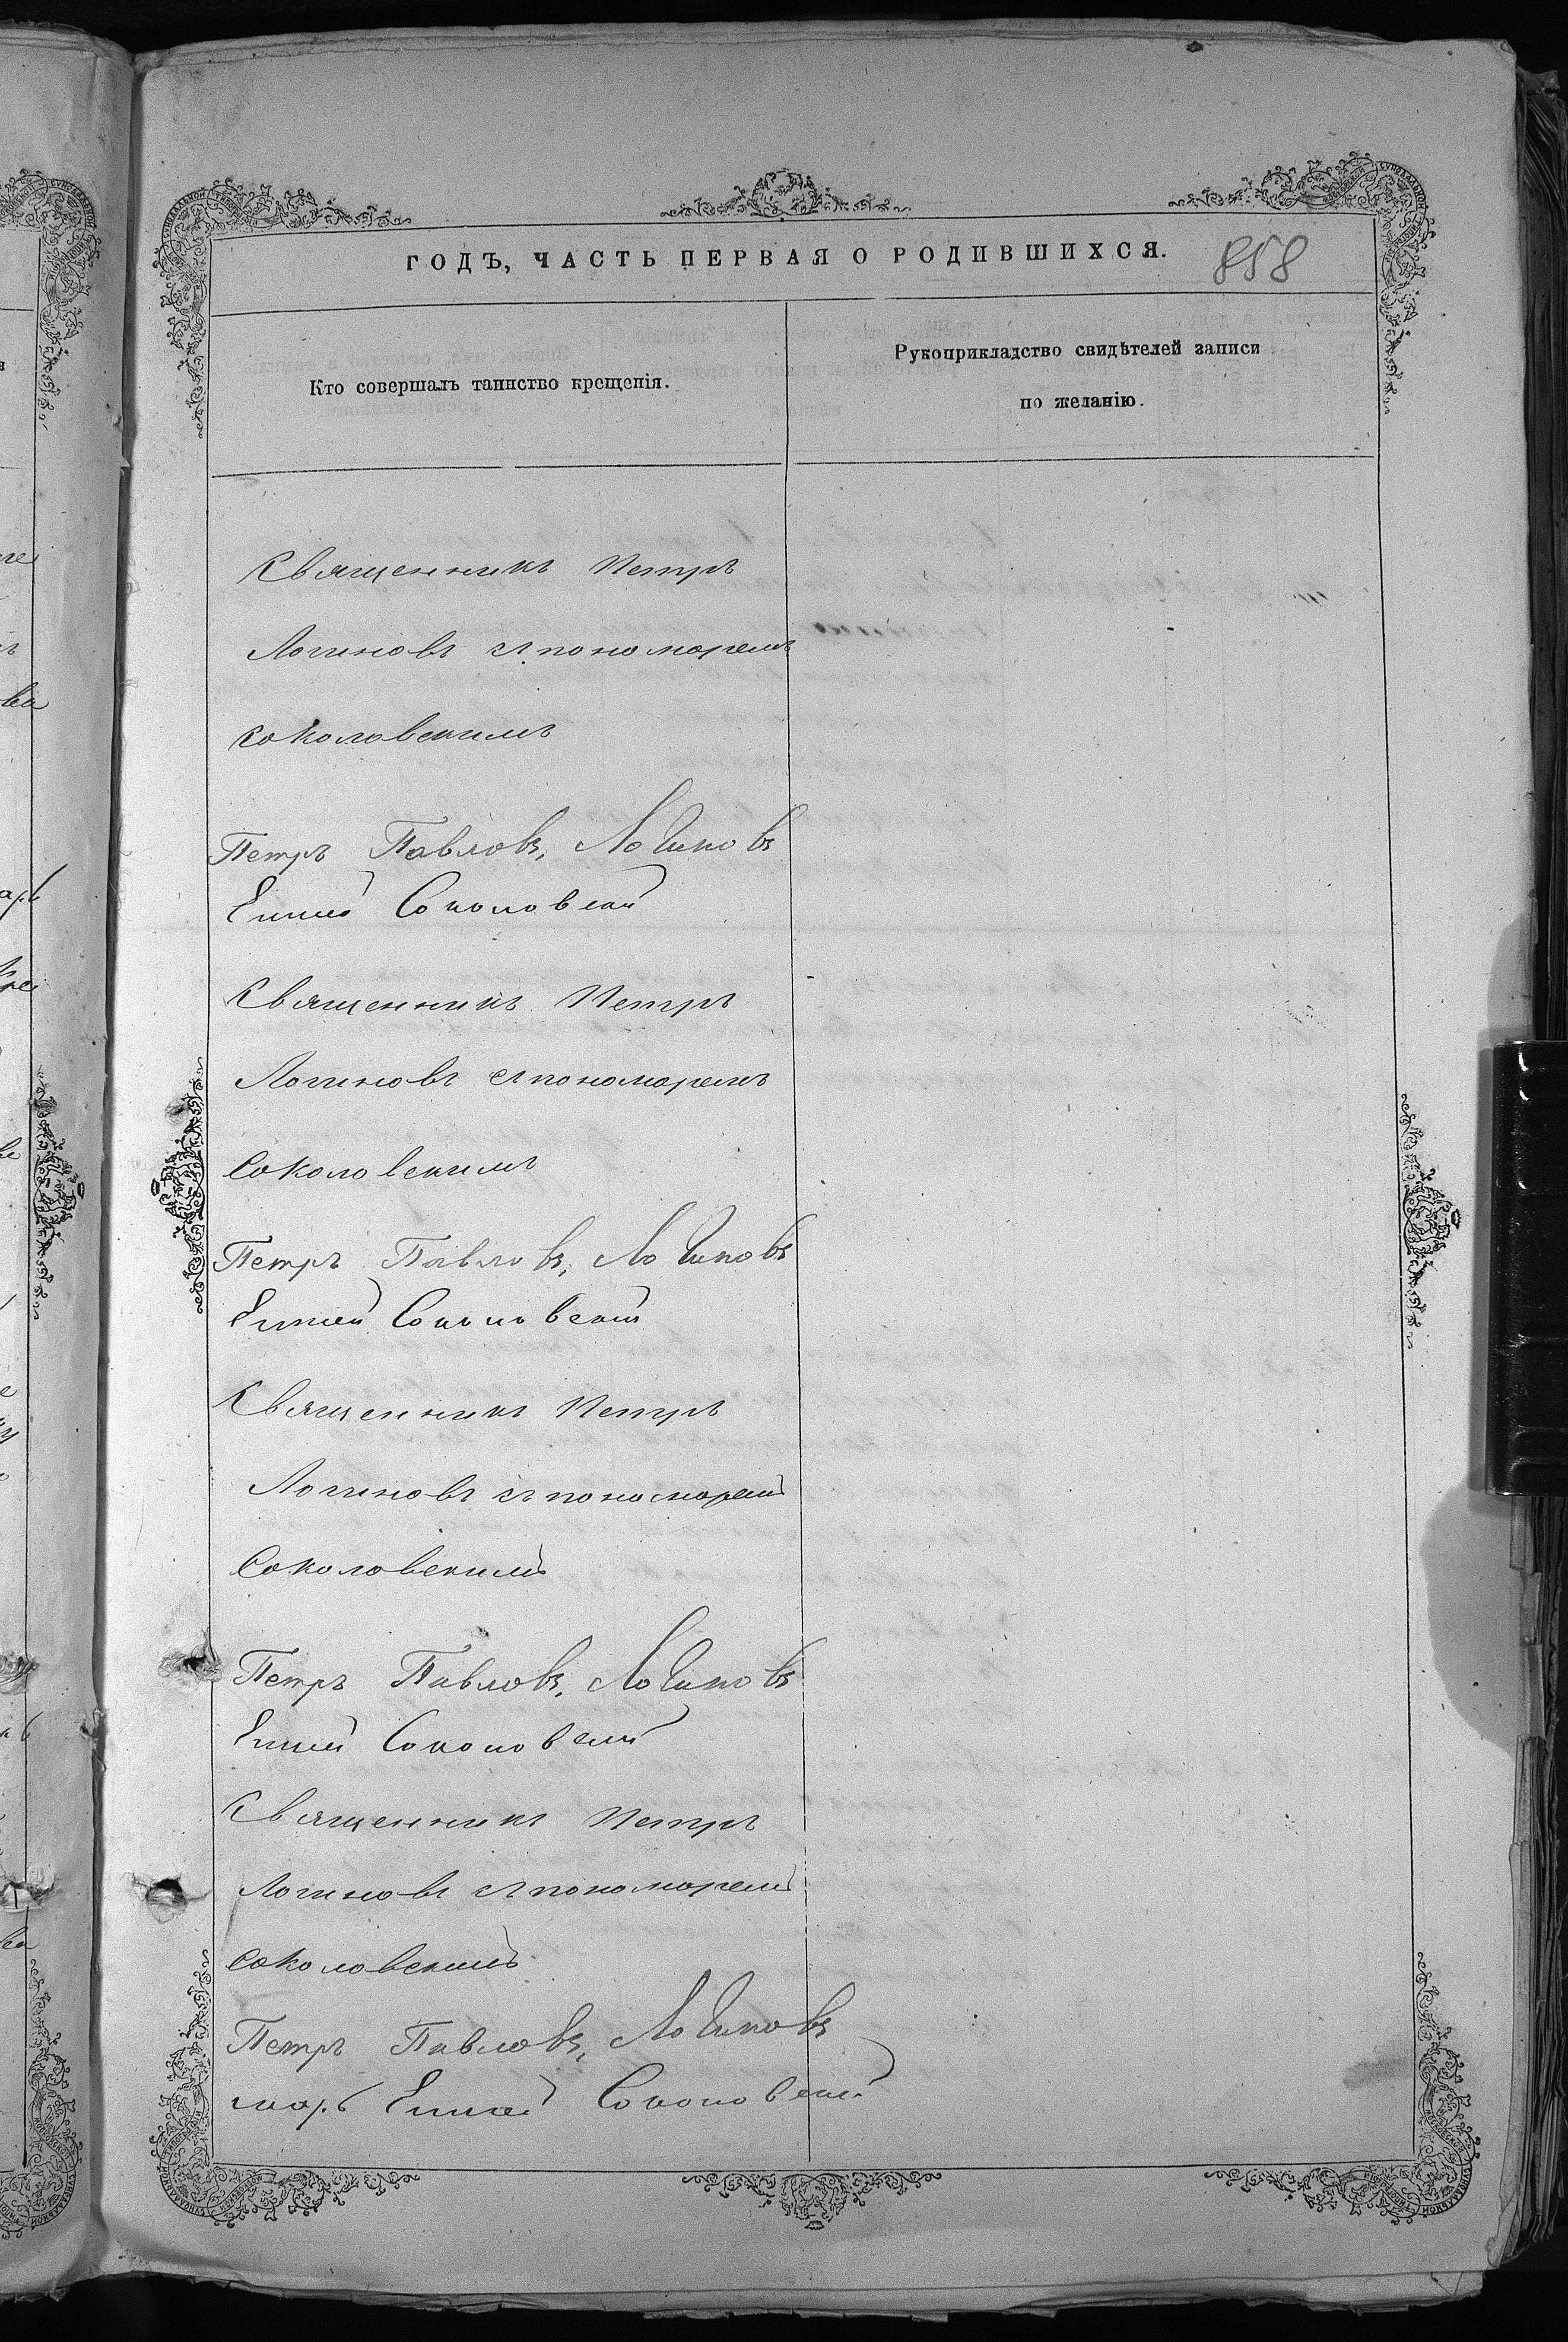 ГОДЪ, ЧАСТЬ ПЕРВАЯ О РОДИВШИХСЯ. 858
Кто совершалъ таинство крещенія.
Рукоприкладство свидѣтелей записи
по желанію.
Священникъ Петръ
Логиновъ съ пономаремъ
Соколовскимъ
Петръ Павловъ, Логиновъ
Соколовскій
Священникъ Петръ
Логиновъ съ пономаремъ
Соколовскимъ
Петръ Павловъ, Логиновъ
Соколовскій
Священникъ Петръ
Логиновъ съ пономаремъ
Соколовскимъ
Петръ Павловъ, Логиновъ
Соколовскій
Священникъ Петръ
Логиновъ съ пономаремъ
Соколовскимъ
Петръ Павловъ, Логиновъ
Соколовскій